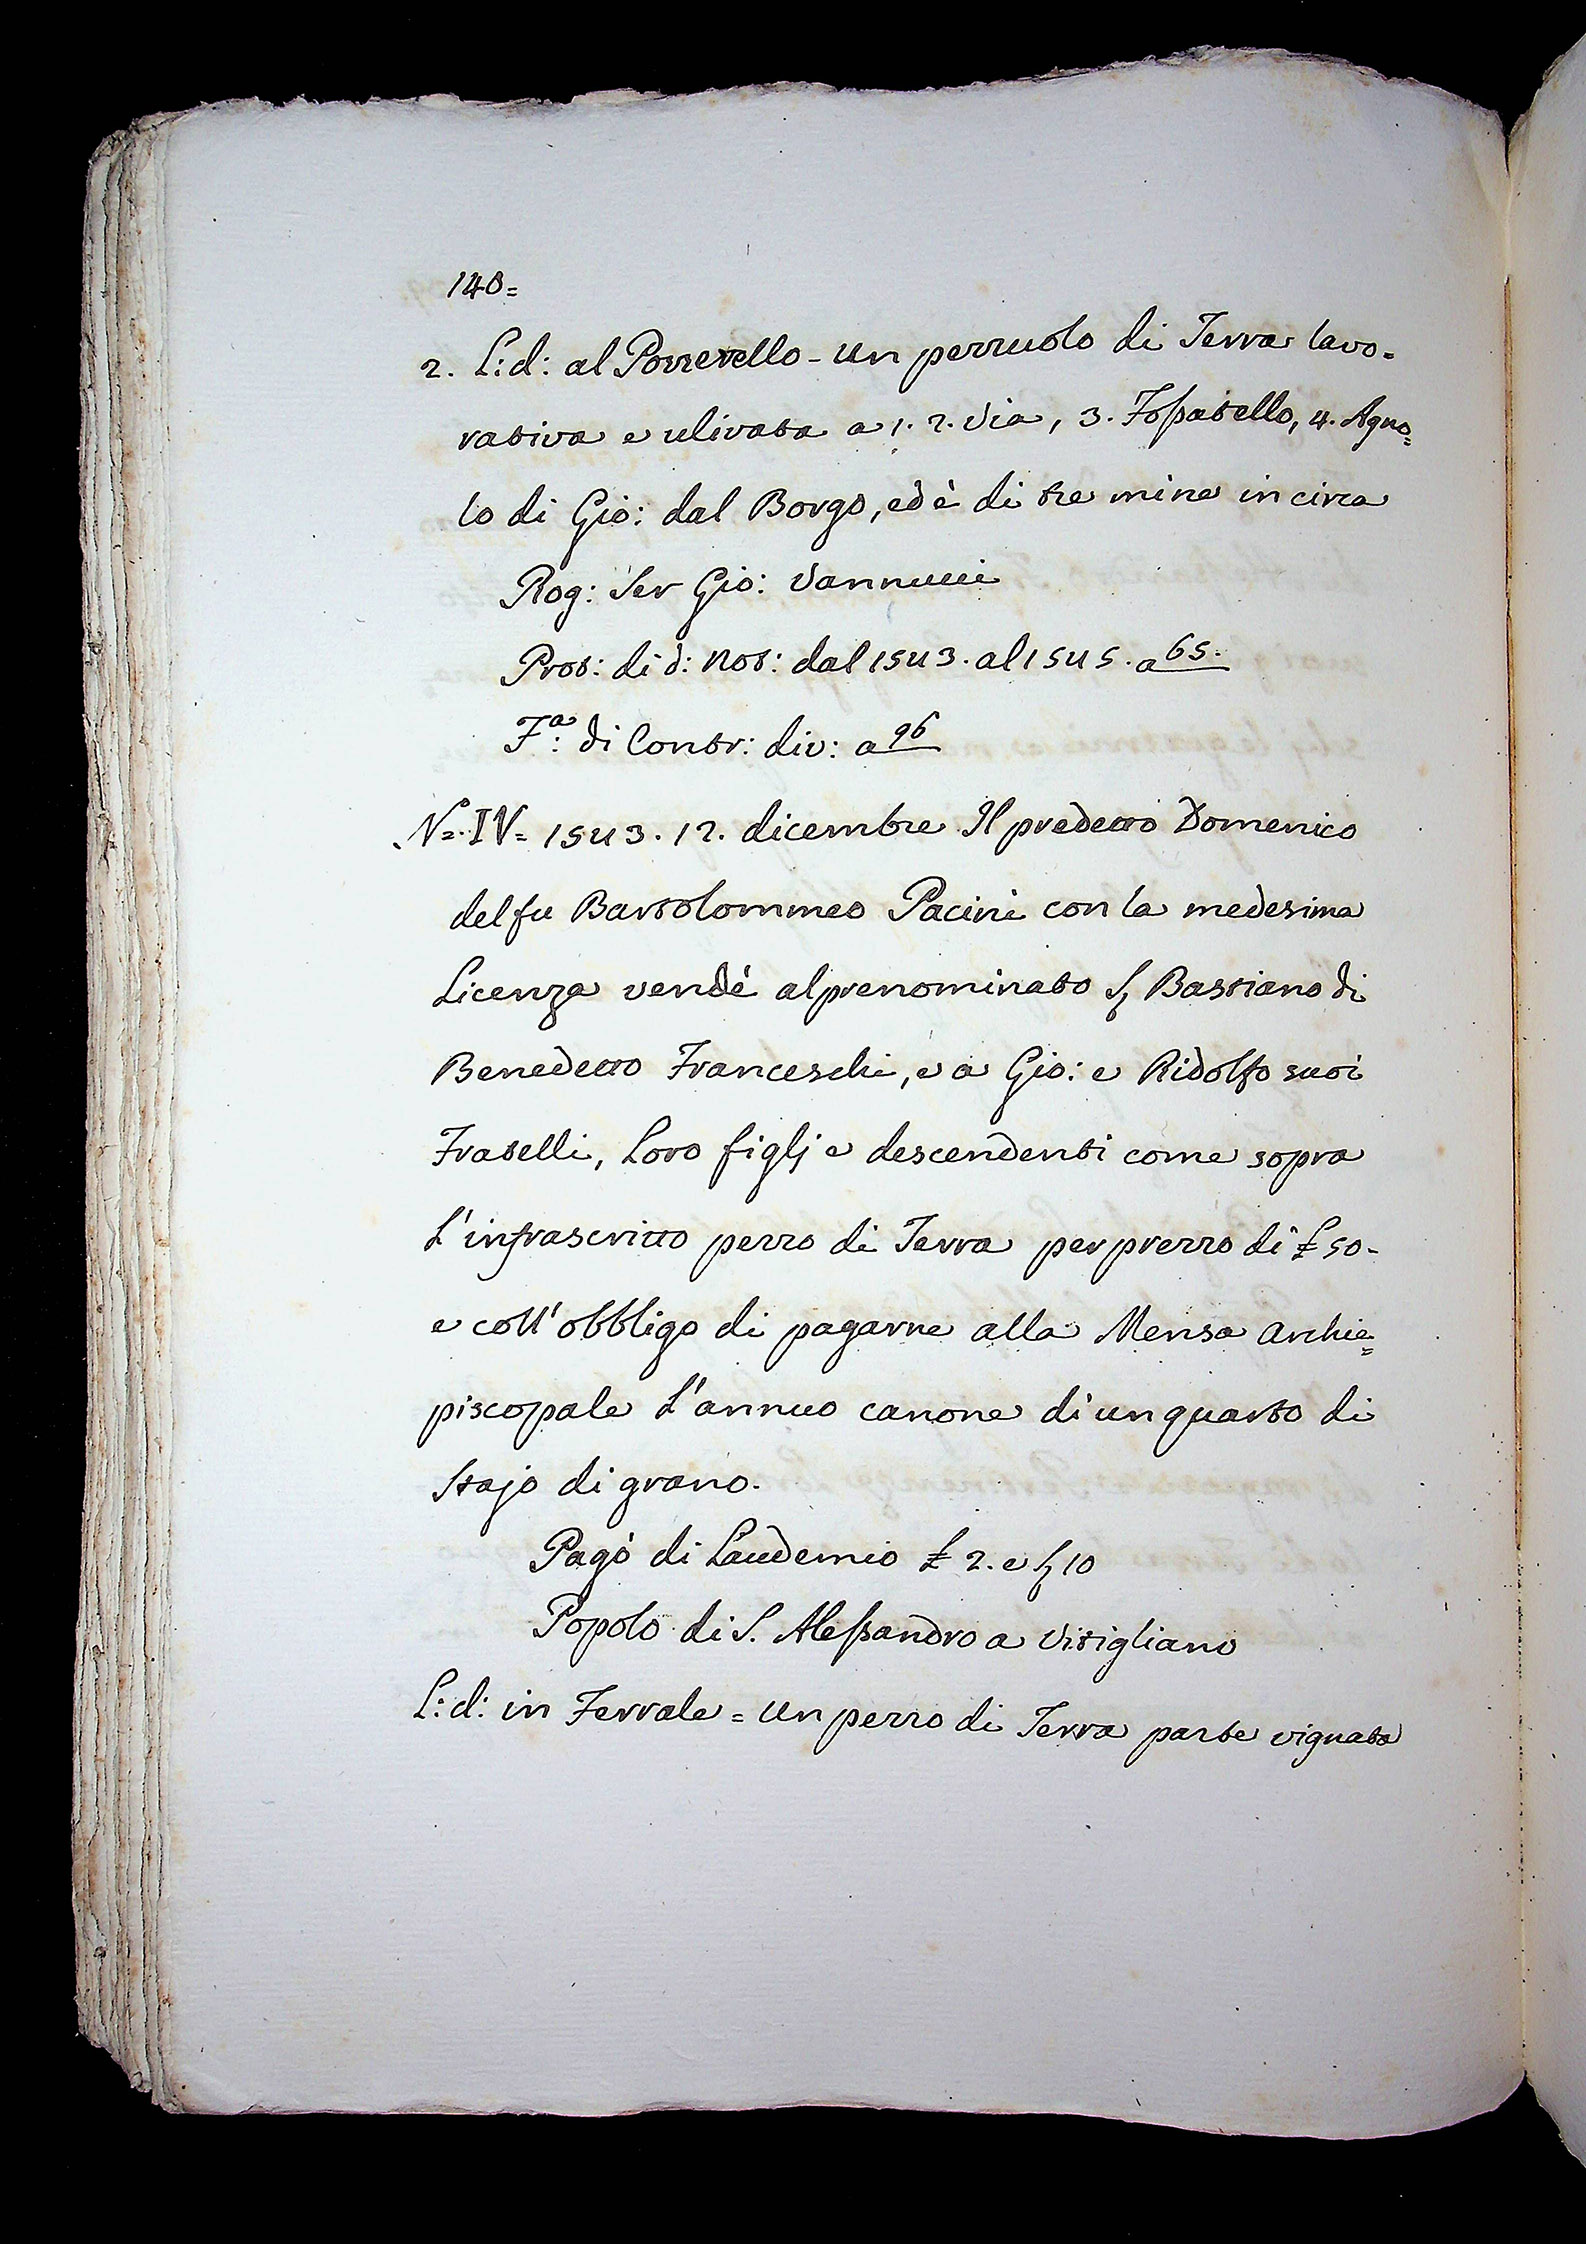 140=
2. L: d: al Pozzetello - Un pezzuolo di Terra lavo=
rativa e ulivata a 1. 2. Via, 3. Fossatello, 4. Agno=
lo di Gio: dal Borgo, ed è di tre mine in circa
Rog: Ser Gio: Vannucci
Prot: di d: Not: dal 1543. al 1545. a 65.
Fa: di Contr: div: a 96
No. IV= 1543. 12. dicembre Il predetto Domenico
del fu Bartolommeo Pacini con la medesima
Licenza vendè al prenominato S. Bastiano di
Benedetto Franceschi, e a Gio: e Ridolfo suoi
Fratelli, Loro figlj e descendenti come sopra
L'infrascritto pezzo di Terra per prezzo di £ 50-
e coll'obbligo di pagarne alla Mensa Archie=
piscopale L'annuo canone di un quarto di
Stajo di grano.
Pagò di Laudemio £ 2. e S 10
Popolo di S. Alessandro a Vitigliano
L: d: in Ferrale = Un pezzo di Terra parte vignata